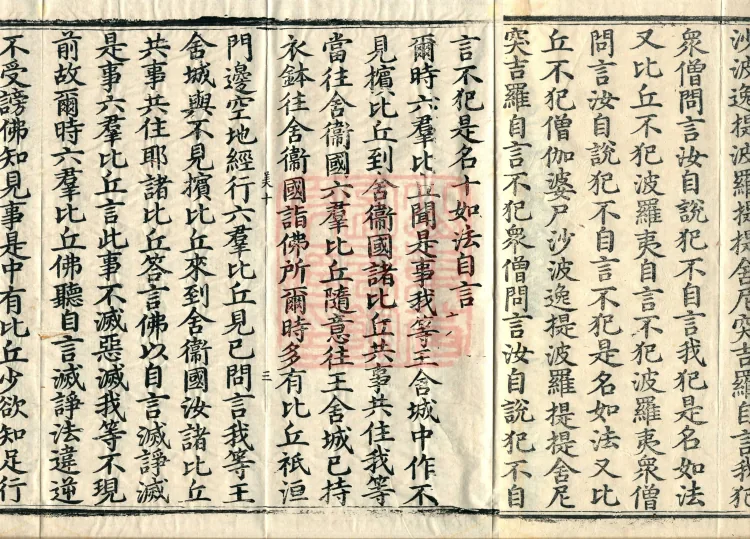 沙波逸提波羅提提舍尼突吉羅自言我犯
衆僧問言汝自說犯不自言我犯是名如法
又比丘不犯波羅夷自言不犯波羅夷衆僧
問言汝自說犯不自言不犯是名如法又比
丘不犯僧伽婆尸沙波逸提波羅提提舍尼
突吉羅自言不犯衆僧問言汝自說犯不自
言不犯是名十如法自言
爾時六羣比丘聞是事我等王舍城中作不
見擯比丘到舍衞國諸比丘共事共住我等
當往舍衞國六羣比丘隨意往王舍城已持
衣鉢往舍衞國詣佛所爾時多有比丘祇洹
十 三
門邊空地經行六羣比丘見已問言我等王
舍城與不見擯比丘來到舍衞國汝諸比丘
共事共住耶諸比丘答言佛以自言滅諍滅
是事六羣比丘言此事不滅惡滅我等不現
前故爾時六羣比丘佛聽自言滅諍法違逆
不受謗佛知見事是中有比丘少欲知足行